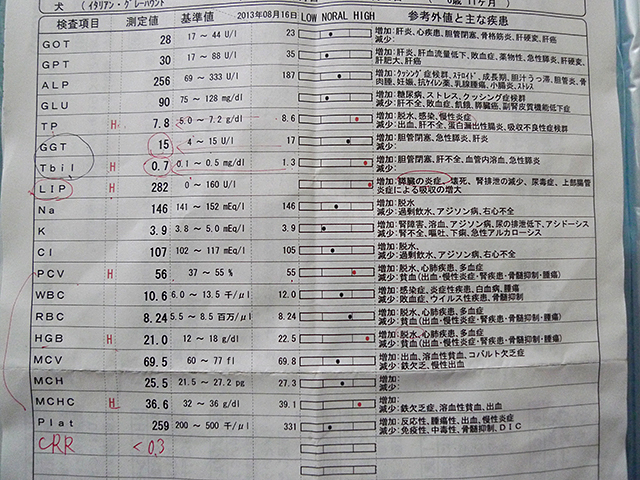 犬 （イタリアン・グレーハウンド
6歳 11ヶ月 ）
検査項目 測定値 基準値 2013年08月16日 LOW NORAL HIGH 参考外値と主な疾患
GOT 28 17 ～ 44 U/l 23 増加:肝炎、心疾患、胆管閉塞、骨格筋炎、肝硬変、肝癌
減少:
GPT 30 17 ～ 88 U/l 35 増加:肝炎、肝血流量低下、敗血症、薬物性、急性膵炎、肝硬変、
肝肥大、肝癌
ALP 256 69 ～ 333 U/l 187 増加:クッシング症候群、ステロイド、成長期、胆汁うっ滞、胆管炎、骨
肉腫、妊娠、抗ケイレン薬、乳腺腫瘍、小腸炎、ストレス
GLU 90 75 ～ 128 mg/dl 増加:糖尿病、ストレス、クッシング症候群
減少:肝不全、敗血症、飢餓、膵臓癌、副腎皮質機能低下症
TP H 7.8 5.0 ～ 7.2 g/dl 8.6 増加:脱水、感染、慢性炎症
減少:出血、肝不全、蛋白漏出性腸炎、吸収不良症候群
GGT 15 4 ～ 15 U/l 17 増加:胆管閉塞、急性膵炎、肝炎
減少:
Tbil H 0.7 0.1 ～ 0.5 mg/dl 1.3 増加:胆管閉塞、肝不全、血管内溶血、急性膵炎
減少:
LIP H 282 0 ～ 160 U/l 増加:膵臓の炎症、壊死、腎排泄の減少、尿毒症、上部腸管
炎症による吸収の増大
Na 146 141 ～ 152 mEq/l 146 増加:脱水
減少:過剰飲水、アジソン病、右心不全
K 3.9 3.8 ～ 5.0 mEq/l 3.9 増加:腎障害、溶血、アジソン病、尿の排泄低下、アシドーシス
減少:腎不全、嘔吐、下痢、急性アルカローシス
Cl 107 102 ～ 117 mEq/l 105 増加:脱水、
減少:過剰飲水、アジソン病、右心不全
PCV H 56 37 ～ 55 % 55 増加:脱水、心肺疾患、多血症
減少:貧血(出血・慢性炎症・腎疾患・骨髄抑制・腫瘍)
WBC 10.6 6.0 ～ 13.5 千/μl 12.0 増加:感染症、炎症性疾患、白血病、腫瘍
減少:敗血症、ウイルス性疾患、骨髄抑制
RBC 8.24 5.5 ～ 8.5 百万/μl 8.24 増加:脱水、心肺疾患、多血症
減少:貧血(出血・慢性炎症・腎疾患・骨髄抑制・腫瘍)
HGB H 21.0 12 ～ 18 g/dl 22.5 増加:脱水、心肺疾患、多血症
減少:貧血(出血・慢性炎症・腎疾患・骨髄抑制・腫瘍)
MCV 69.5 60 ～ 77 fl 69.8 増加:出血、溶血性貧血、コバルト欠乏症
減少:鉄欠乏、慢性出血
MCH 25.5 21.5 ～ 27.2 pg 27.3 増加:
減少:
MCHC H 36.6 32 ～ 36 g/dl 39.1 増加:
減少:鉄欠乏症、溶血性貧血、出血
Plat 259 200 ～ 500 千/μl 331 増加:反応性、腫瘍性、出血、慢性炎症
減少:免疫性、中毒性、骨髄抑制、DIC
CRR <0.3